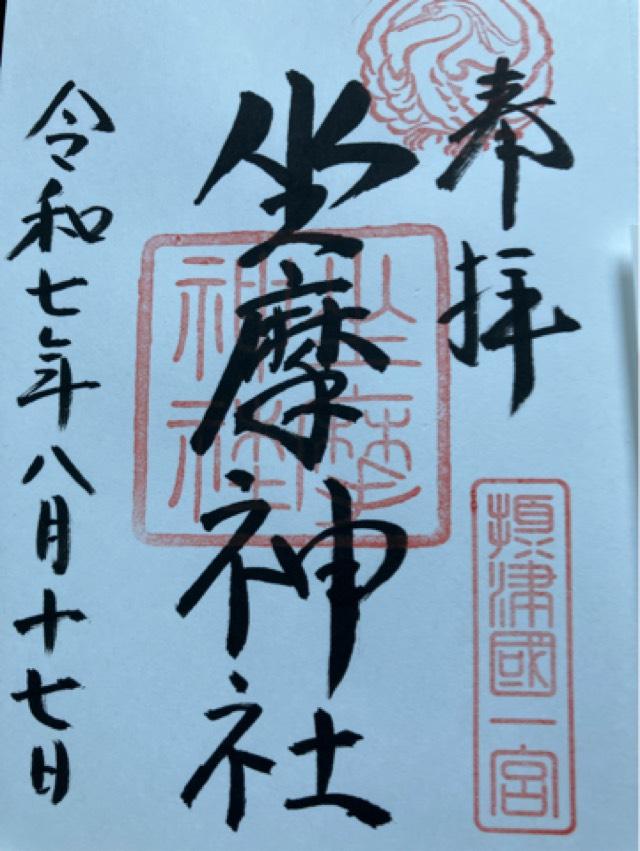 奉拝
摂津國一宮
坐摩神社
坐摩神社
令和七年八月十七日